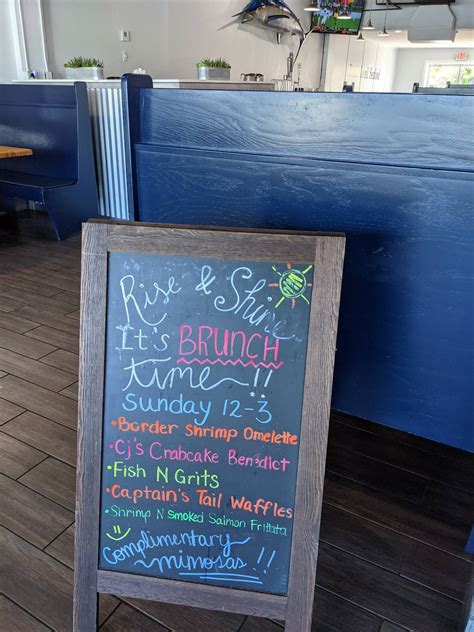 Rise & Shine
It's BRUNCH
time!!
Sunday 12-3
•Border Shrimp Omelette
•Cj's Crabcake Benedict
•Fish N Grits
•Captain's Tail Waffles
•Shrimp N Smoked Salmon Frittata
Complimentary
mimosas !!
EXIT